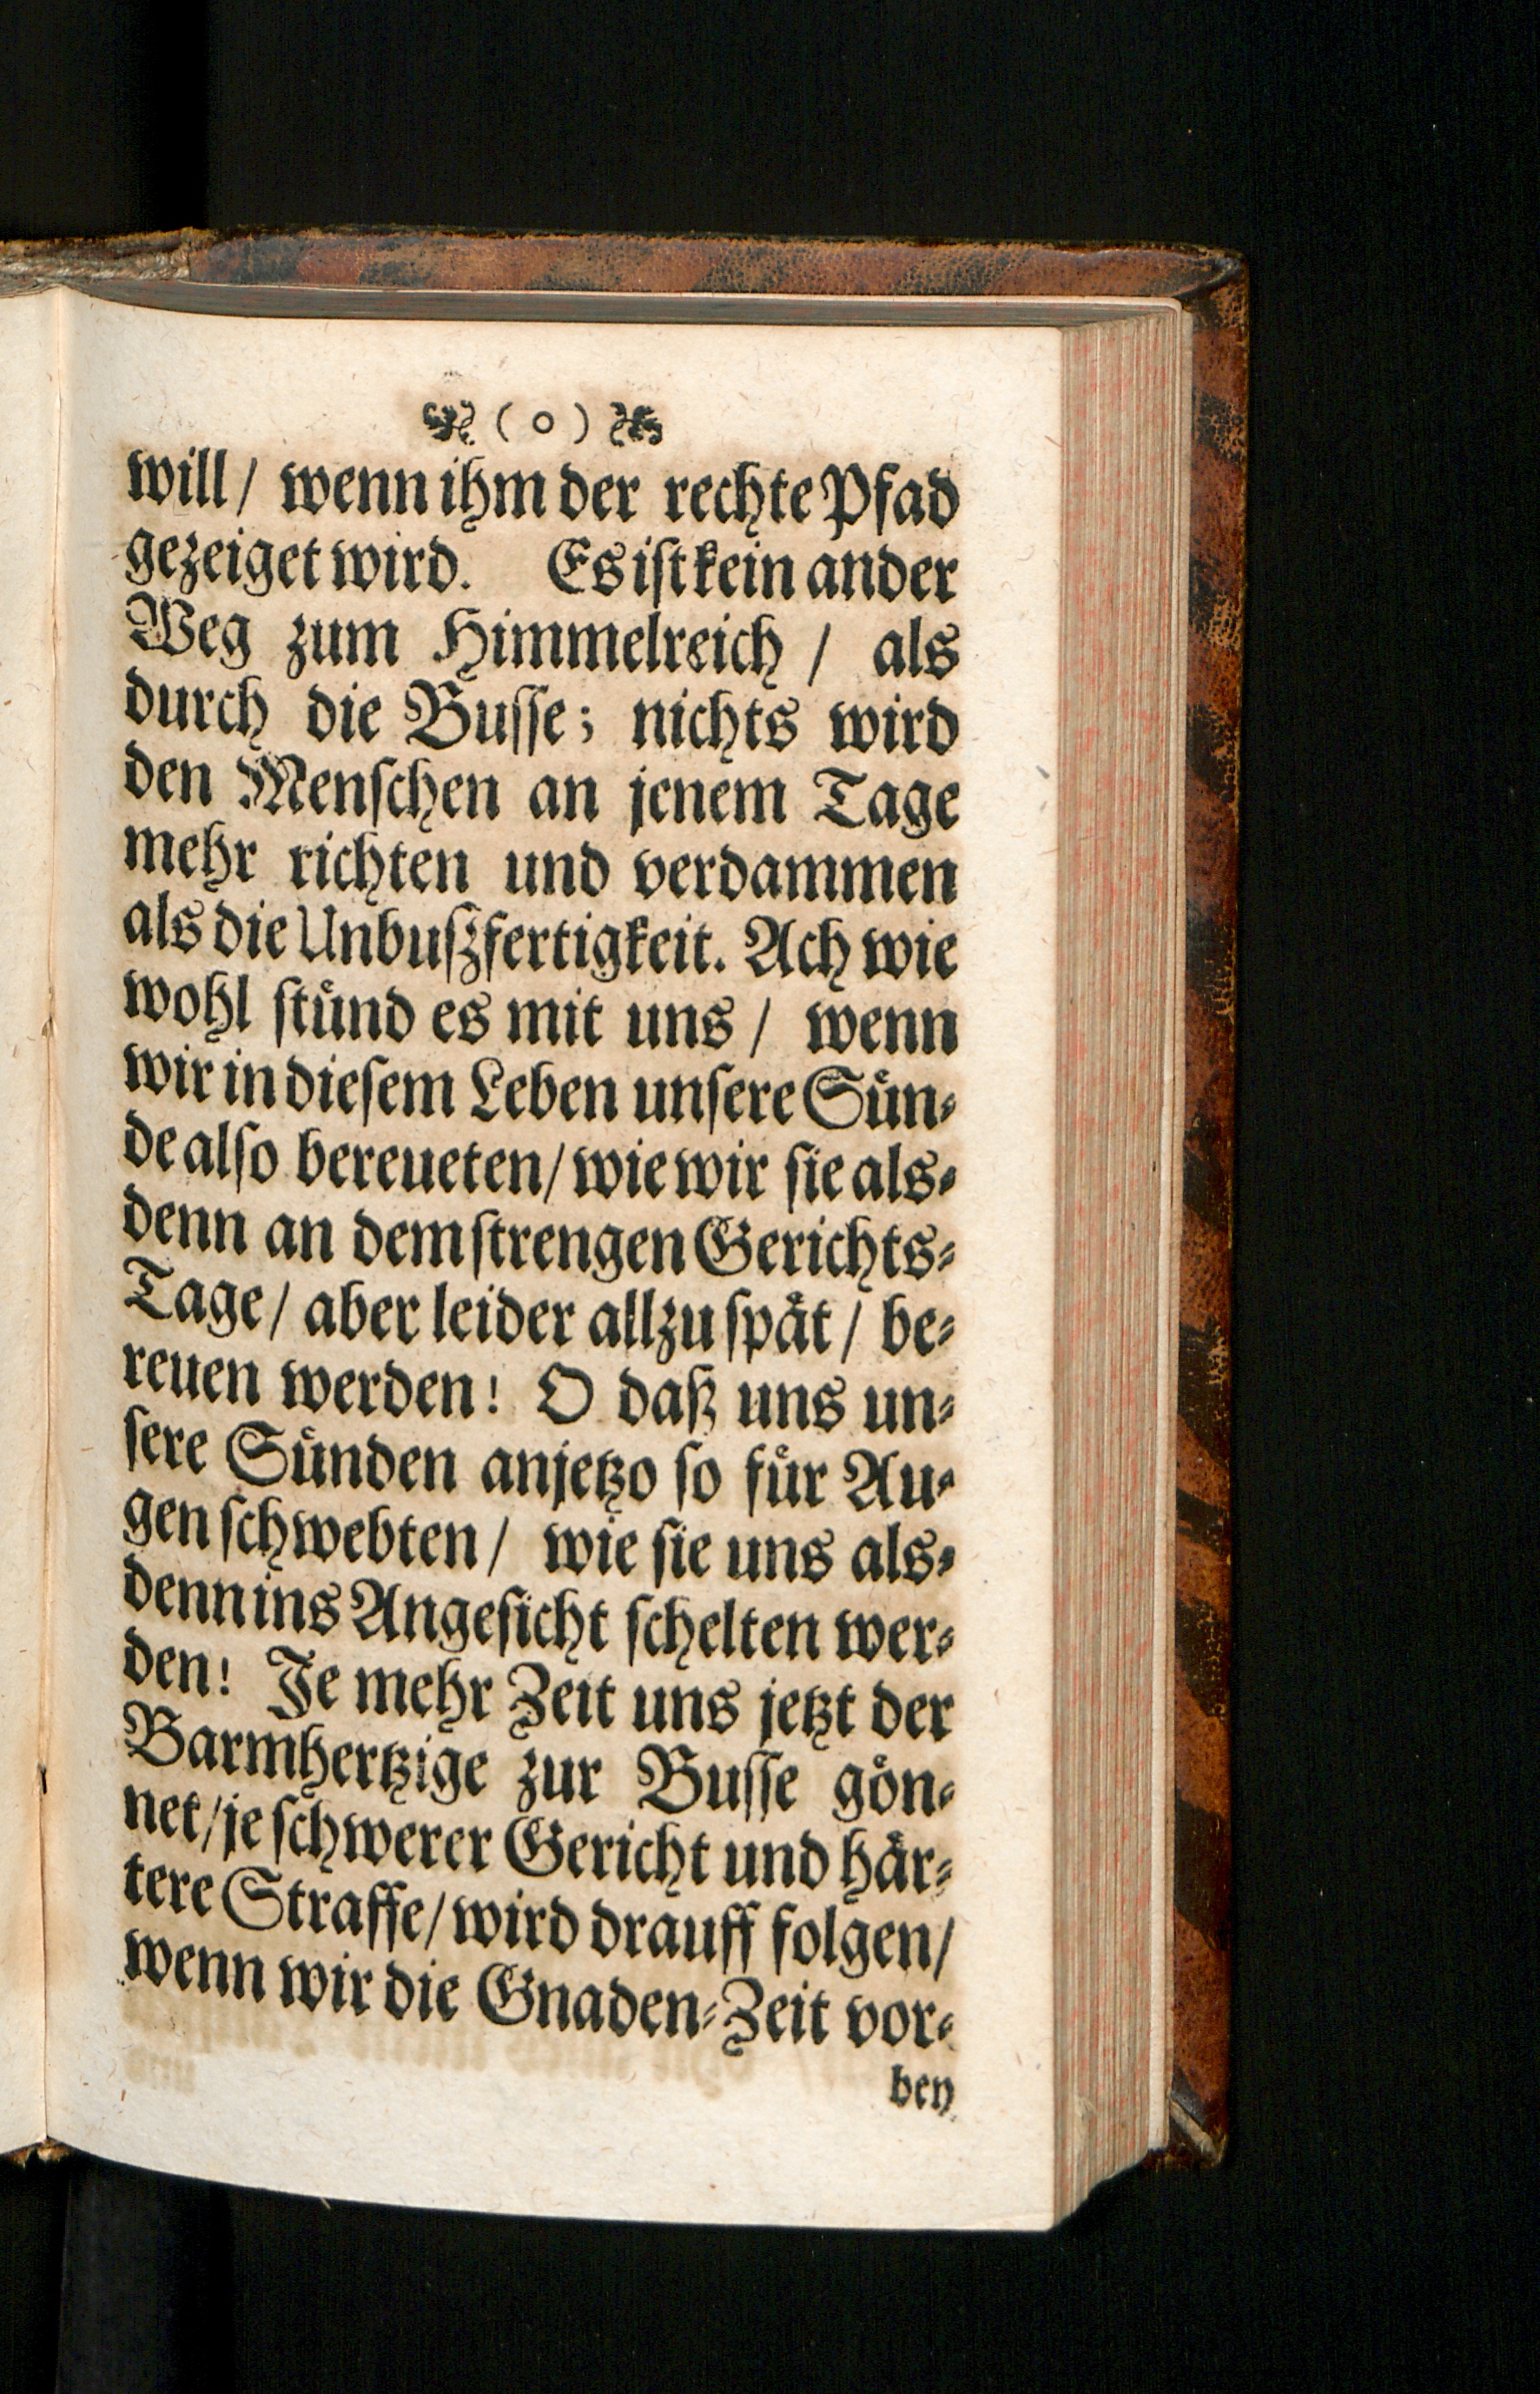 ( o )
will / wenn ihm der rechte Pfad
gezeiget wird. Es ist kein ander
Weg zum Himmelreich / als
durch die Busse; nichts wird
den Menschen an jenem Tage
mehr richten und verdammen
als die Unbußfertigkeit. Ach wie
wohl stuͤnd es mit uns / wenn
wir in diesem Leben unsere Suͤn-
de also bereueten / wie wir sie als-
denn an dem strengen Gerichts-
Tage / aber leider allzu spaͤt / be-
reuen werden! O daß uns un-
sere Suͤnden anjetzo so fuͤr Au-
gen schwebten / wie sie uns als-
denn ins Angesicht schelten wer-
den! Je mehr Zeit uns jetzt der
Barmhertzige zur Busse goͤn-
net / je schwerer Gericht und haͤr-
tere Straffe / wird drauff folgen /
wenn wir die Gnaden-Zeit vor-
bey